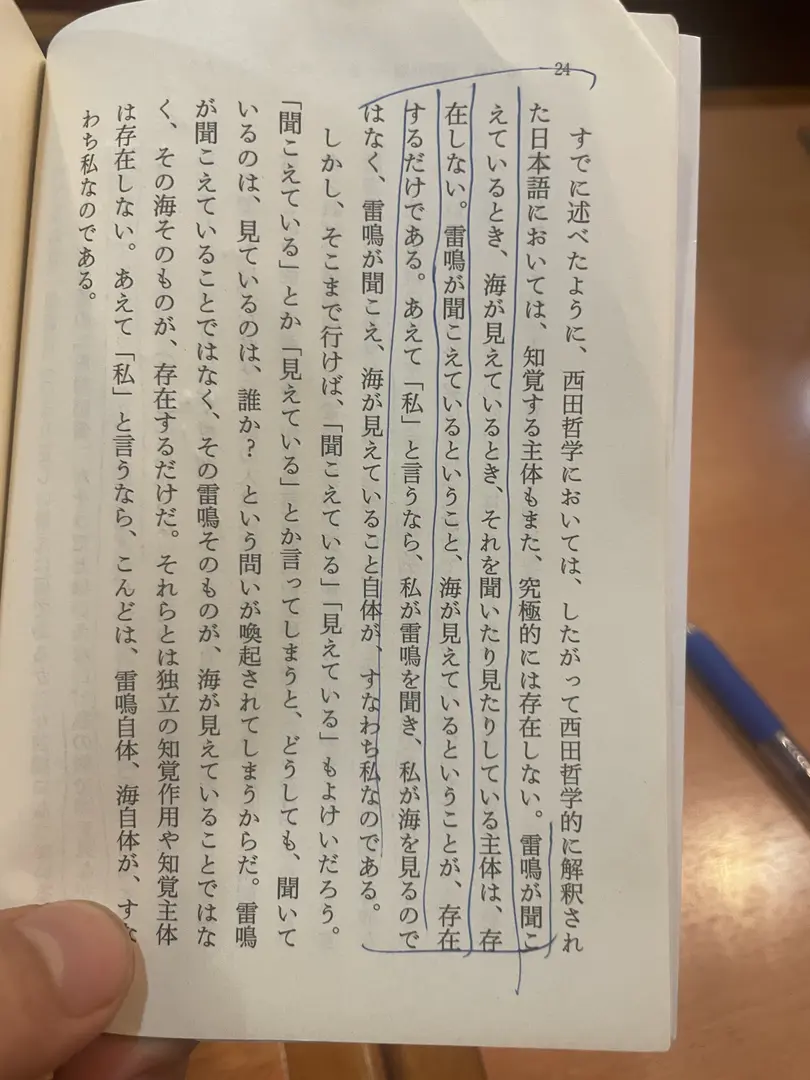 24
すでに述べたように、西田哲学においては、したがって西田哲学的に解釈され
た日本語においては、知覚する主体もまた、究極的には存在しない。雷鳴が聞こ
えているとき、海が見えているとき、それを聞いたり見たりしている主体は、存
在しない。雷鳴が聞こえているということ、海が見えているということが、存在
するだけである。あえて「私」と言うなら、私が雷鳴を聞き、私が海を見るので
はなく、雷鳴が聞こえ、海が見えていること自体が、すなわち私なのである。
しかし、そこまで行けば、「聞こえている」「見えている」もよけいだろう。
「聞こえている」とか「見えている」とか言ってしまうと、どうしても、聞いて
いるのは、見ているのは、誰か？　という問いが喚起されてしまうからだ。雷鳴
が聞こえていることではなく、その雷鳴そのものが、海が見えていることではな
く、その海そのものが、存在するだけだ。それらとは独立の知覚作用や知覚主体
は存在しない。あえて「私」と言うなら、こんどは、雷鳴自体、海自体が、すな
わち私なのである。